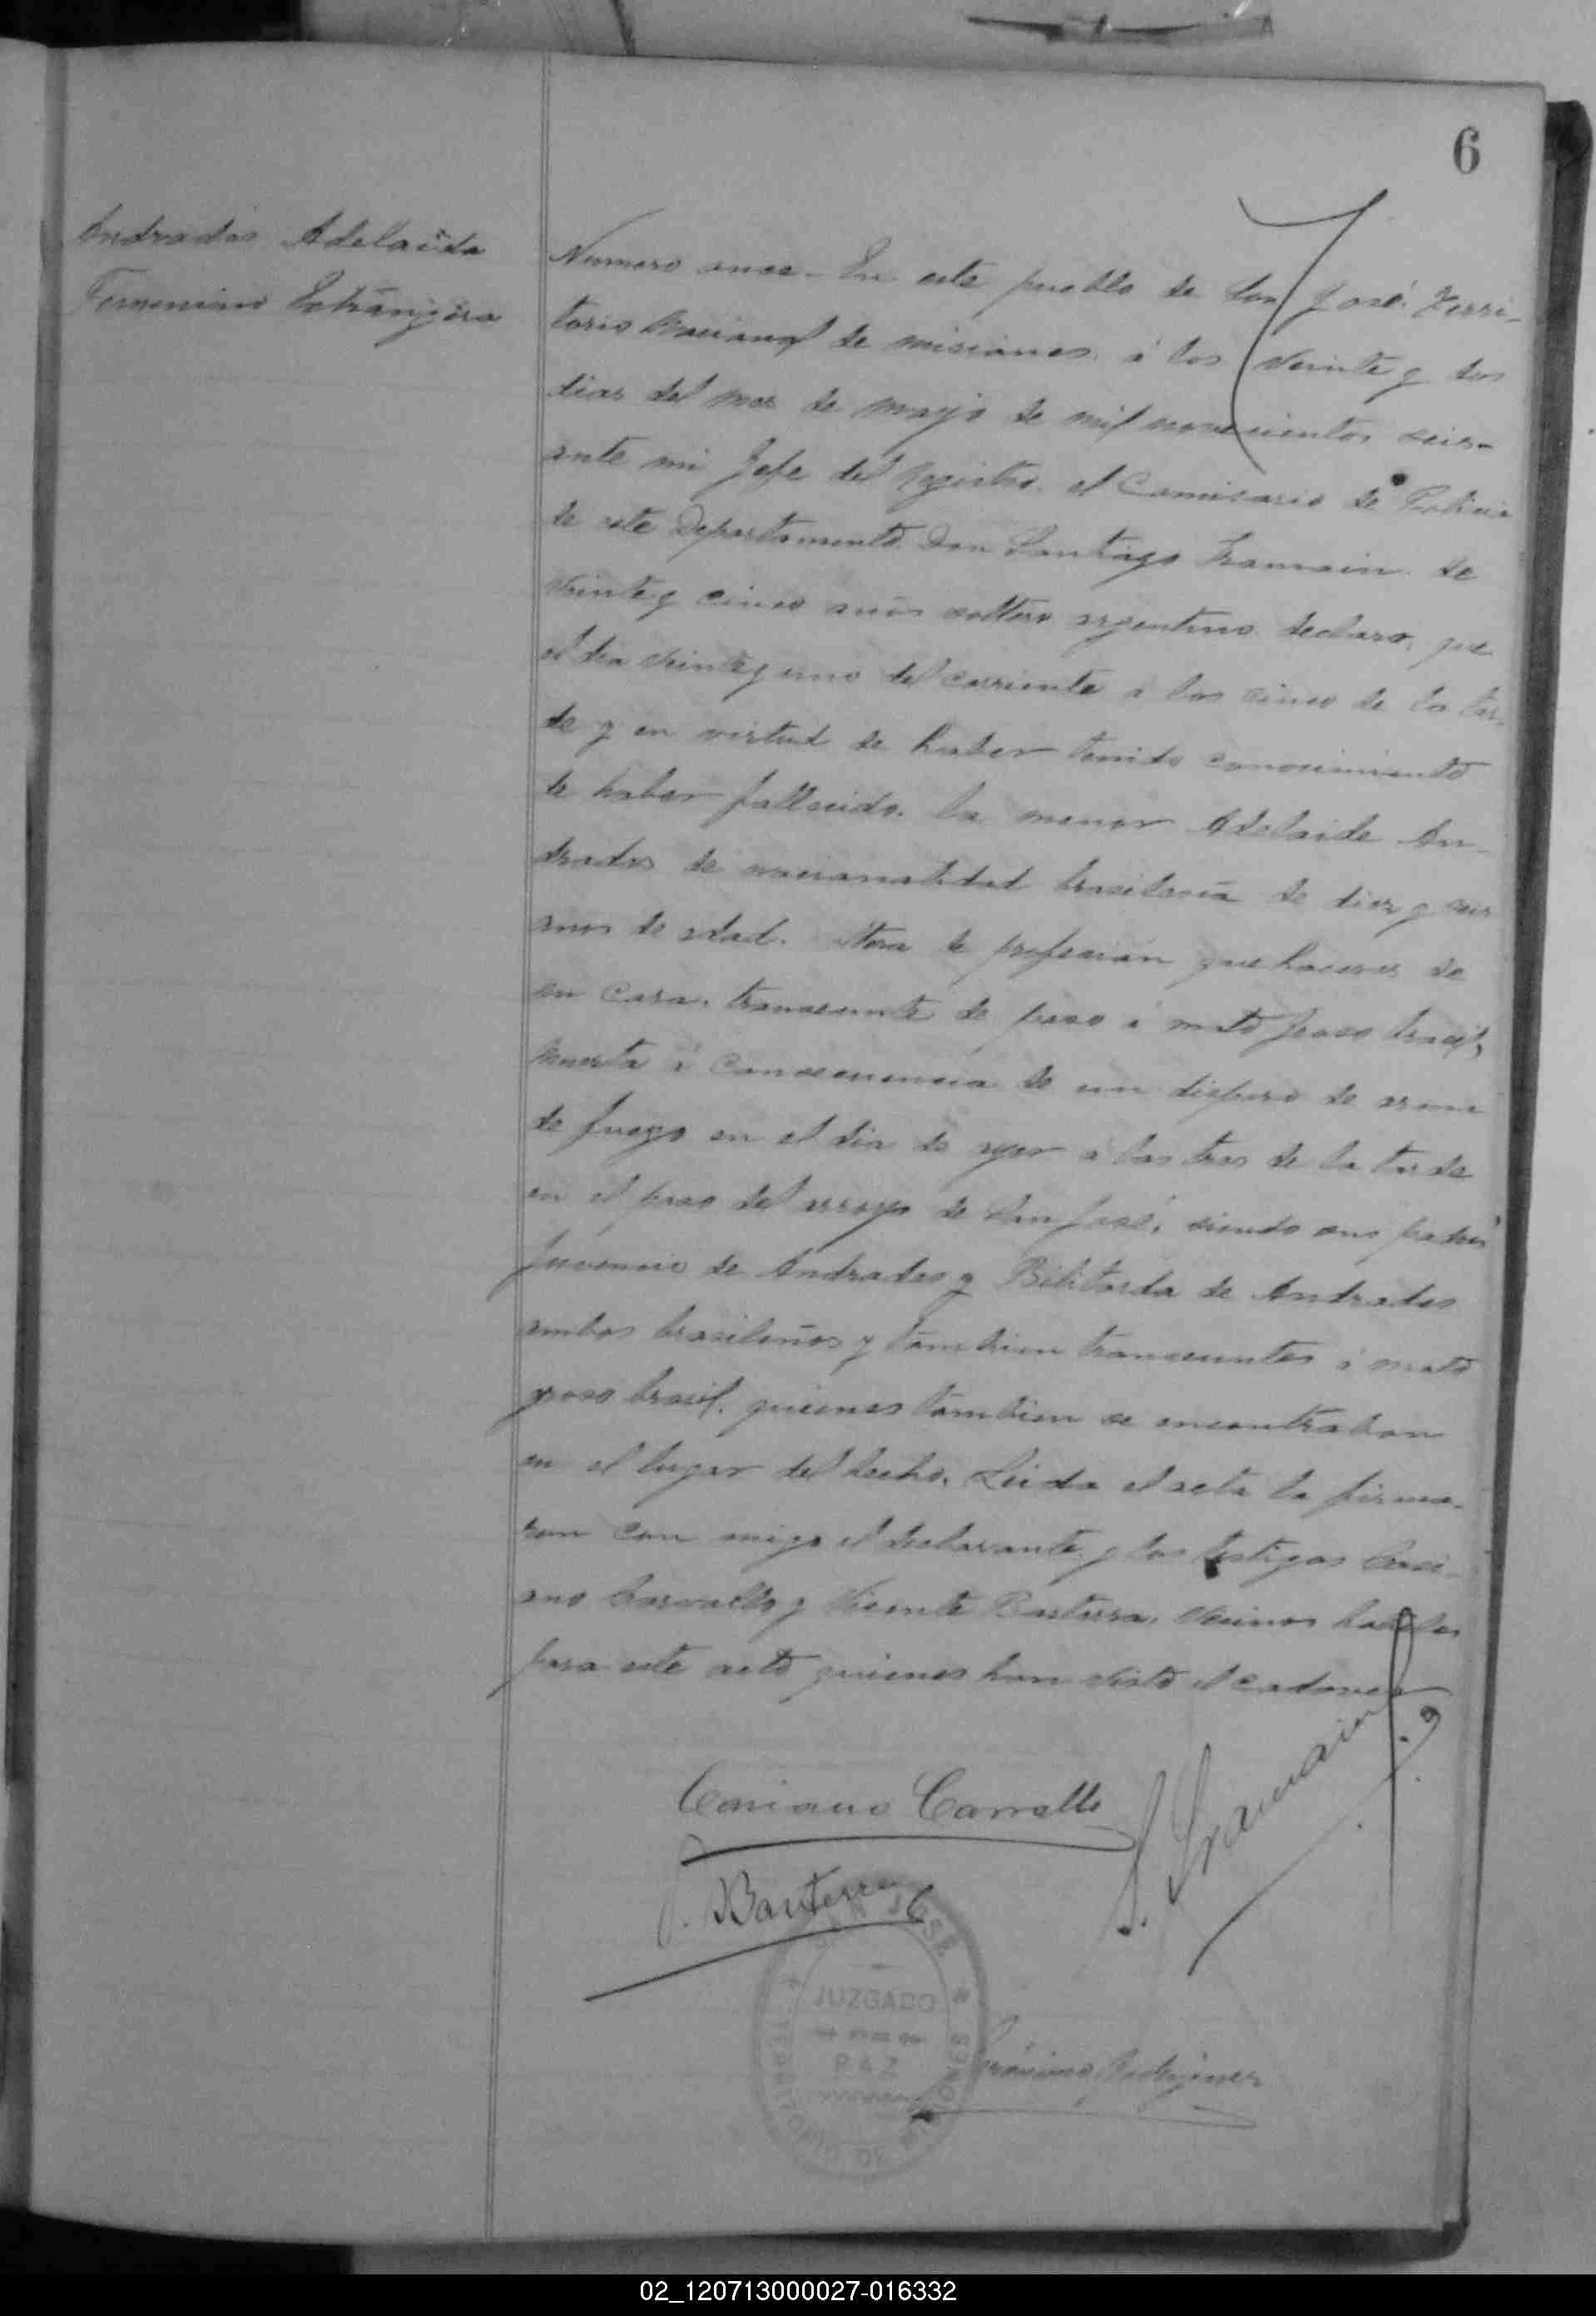 6
Andradas Adelaida
Femenino Extrangera
Numero once. En este pueblo de San José. Terri-
torio Nacional de misiones. á los veinte y dos
dias del mes de mayo de mil novecientos seis-
ante mi Jefe del Registro. el Comisario de Policia
de este Departamento. Don Santiago Tramain. de
veinte y cinco años soltero argentino declaro, que
el dia veinte y uno del corriente a las cinco de la tar-
de y en virtud de haber tenido conocimiento
de haber fallecido. la menor Adelaide An-
dradas de nacionalidad brasilera de diez y seis
anos de edad. de profesion quehaceres de
su casa. transeunte de paso á mato groso brasil,
muerta á consecuencia de un disparo de arma
de fuego en el dia de ayer á las tres de la tarde
en el paso del arroyo de San José, siendo sus padres
Juvencio de Andradas y de Andradas
ambos brasileños y tambien transeuntes á mato
groso brasil. quienes tambien se encontraban
en el lugar del hecho. Leida el acta la firma-
ron con migo el declarante. y los testigos Casi-
ano Carvallo y Vicente Basterra, vecinos habiles
para este acto quienes han visto el cadaver
Casiano Carvallo
S. Tramain
V. Basterra
SAN JOSE
JUZGADO
DE
PAZ
TERRITORIO DE MISIONES
Rodriguez
02_120713000027-016332